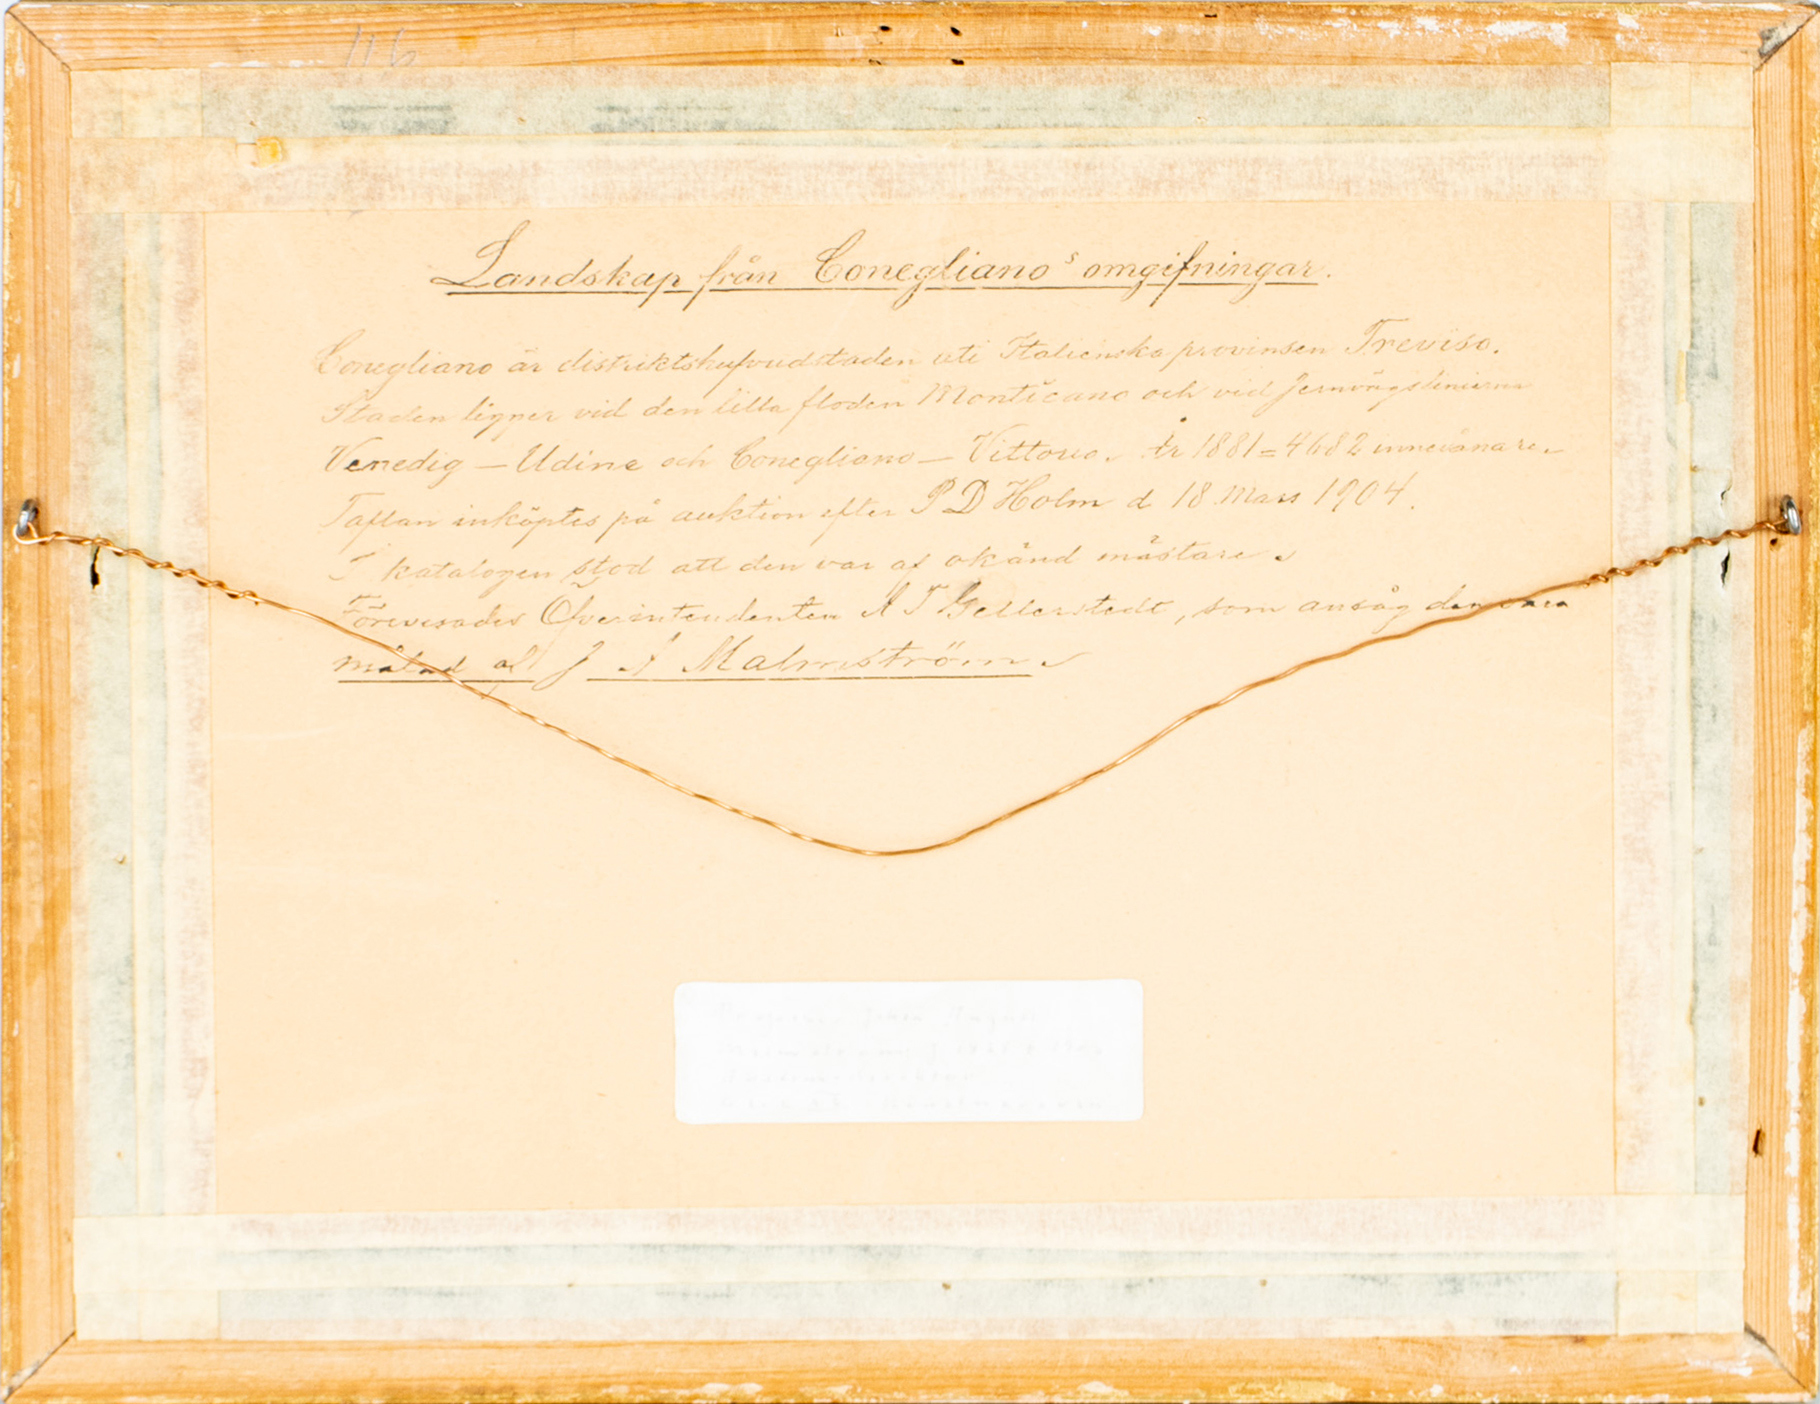 116
Landskap från Conegliano's omgifningar.
Conegliano är distriktshufvudstaden uti Italienska provinsen Treviso.
Staden ligger vid den lilla floden Monticano och vid Jernvägslinierna
Venedig — Udine och Conegliano — Vittorio. År 1881 = 4682 innevånare.
Taflan inköptes på auktion efter P D Holm d 18 Mars 1904.
I katalogen stod att den var af okänd mästare.
Förevisades Öfverintendenten A T Gellerstedt, som ansåg den vara
målad af J A Malmström.